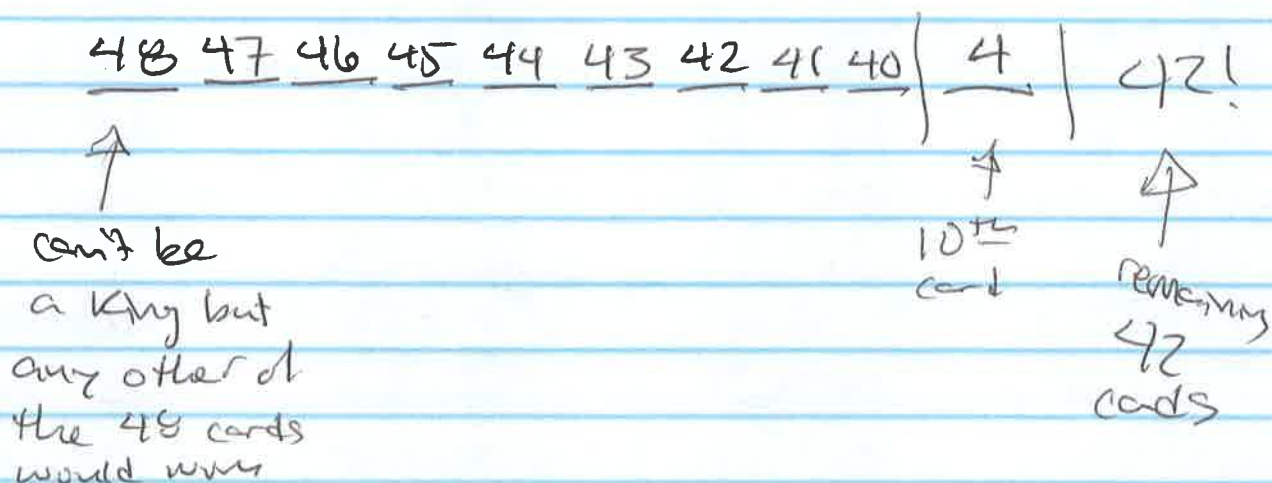 48 47 46 45 44 43 42 41 40 | 4 | 42!
can't be
a king but
any other of
the 48 cards
would work
10th
card
remaining
42
cards